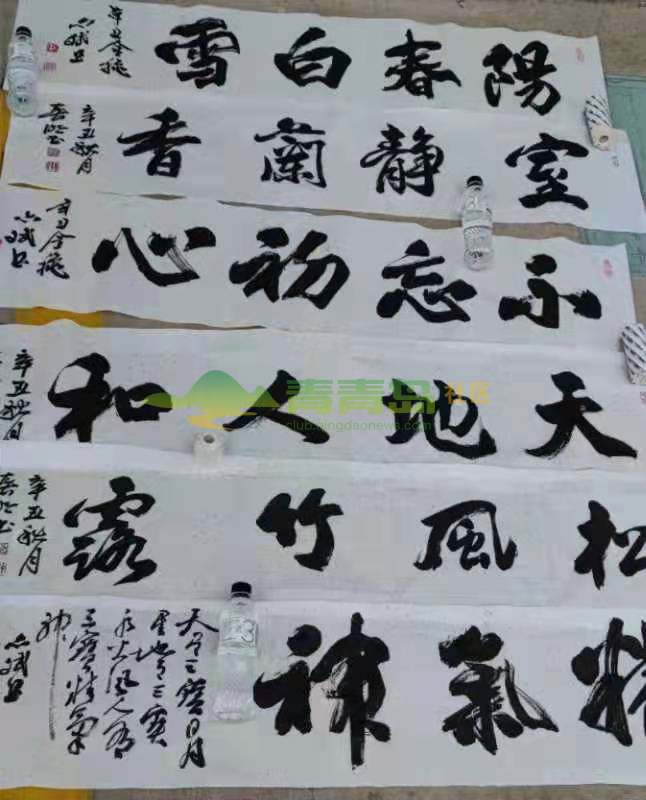 陽春白雪
辛丑金秋
室静蘭香
辛丑秋月
不忘初心
辛丑金秋
天地人和
辛丑秋月
青青岛社区
club.qingdaonews.com
松風竹露
辛丑秋月
精氣神
天有三寶日月
星地有三寶
水火風人有
三寶精氣
神